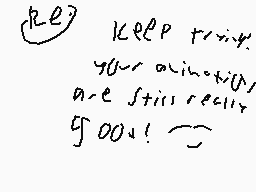 Re:
Keep trying.
your animations
are still really
goox!